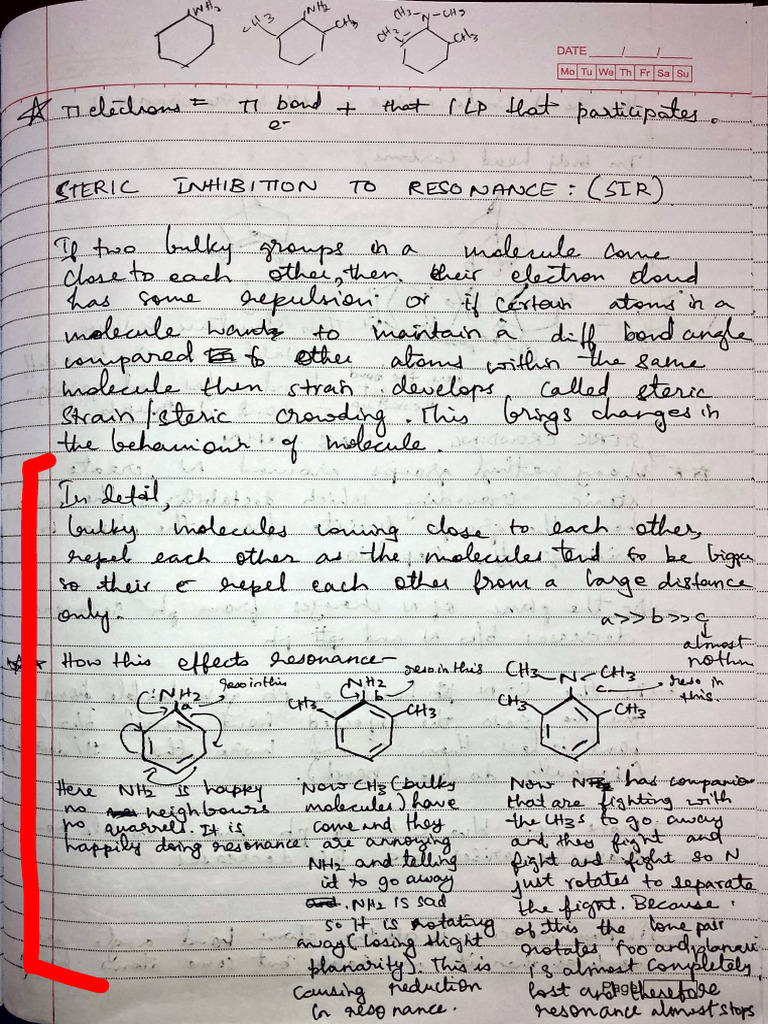 NH2
CH3 NH2 CH3
CH3-N-CH3
CH3 CH3
DATE ____/____/____
Mo Tu We Th Fr Sa Su
π electrons = π bond + that 1 LP that participates.
e-
STERIC INHIBITION TO RESONANCE: (SIR)
If two bulky groups in a molecule come
close to each other, then their electron cloud
has some repulsion or if certain atoms in a
molecule wants to maintain a diff bond angle
compared to other atoms within the same
molecule then strain develops called steric
strain/steric crowding. This brings changes in
the behaviour of molecule.
In detail,
bulky molecules coming close to each other,
repel each other as the molecules tend to be bigger
so their e- repel each other from a large distance
only.
a>>b>>c
almost
nothin
How this effects resonance-
:NH2 a reso in this
NH2 b reso in this
CH3 CH3
CH3-N-CH3
c reso in this.
CH3 CH3
Here NH2 is happy
no neighbours
no quarrels. It is
happily doing resonance.
Now CH3 (bulky
molecules) have
come and they
are annoying
NH2 and telling
it to go away
. NH2 is sad
so it is rotating
away (losing slight
planarity). This is
causing reduction
in resonance.
Now N has companio
that are fighting with
the CH3s to go away
and they fight and
fight and fight so N
just rotates to separate
the fight. Because
of this the lone pair
rotates too and planari
is almost completely
lost and therefore
resonance almost stops
Page